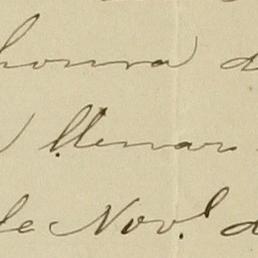 honra d
llenar
de Nov.l d